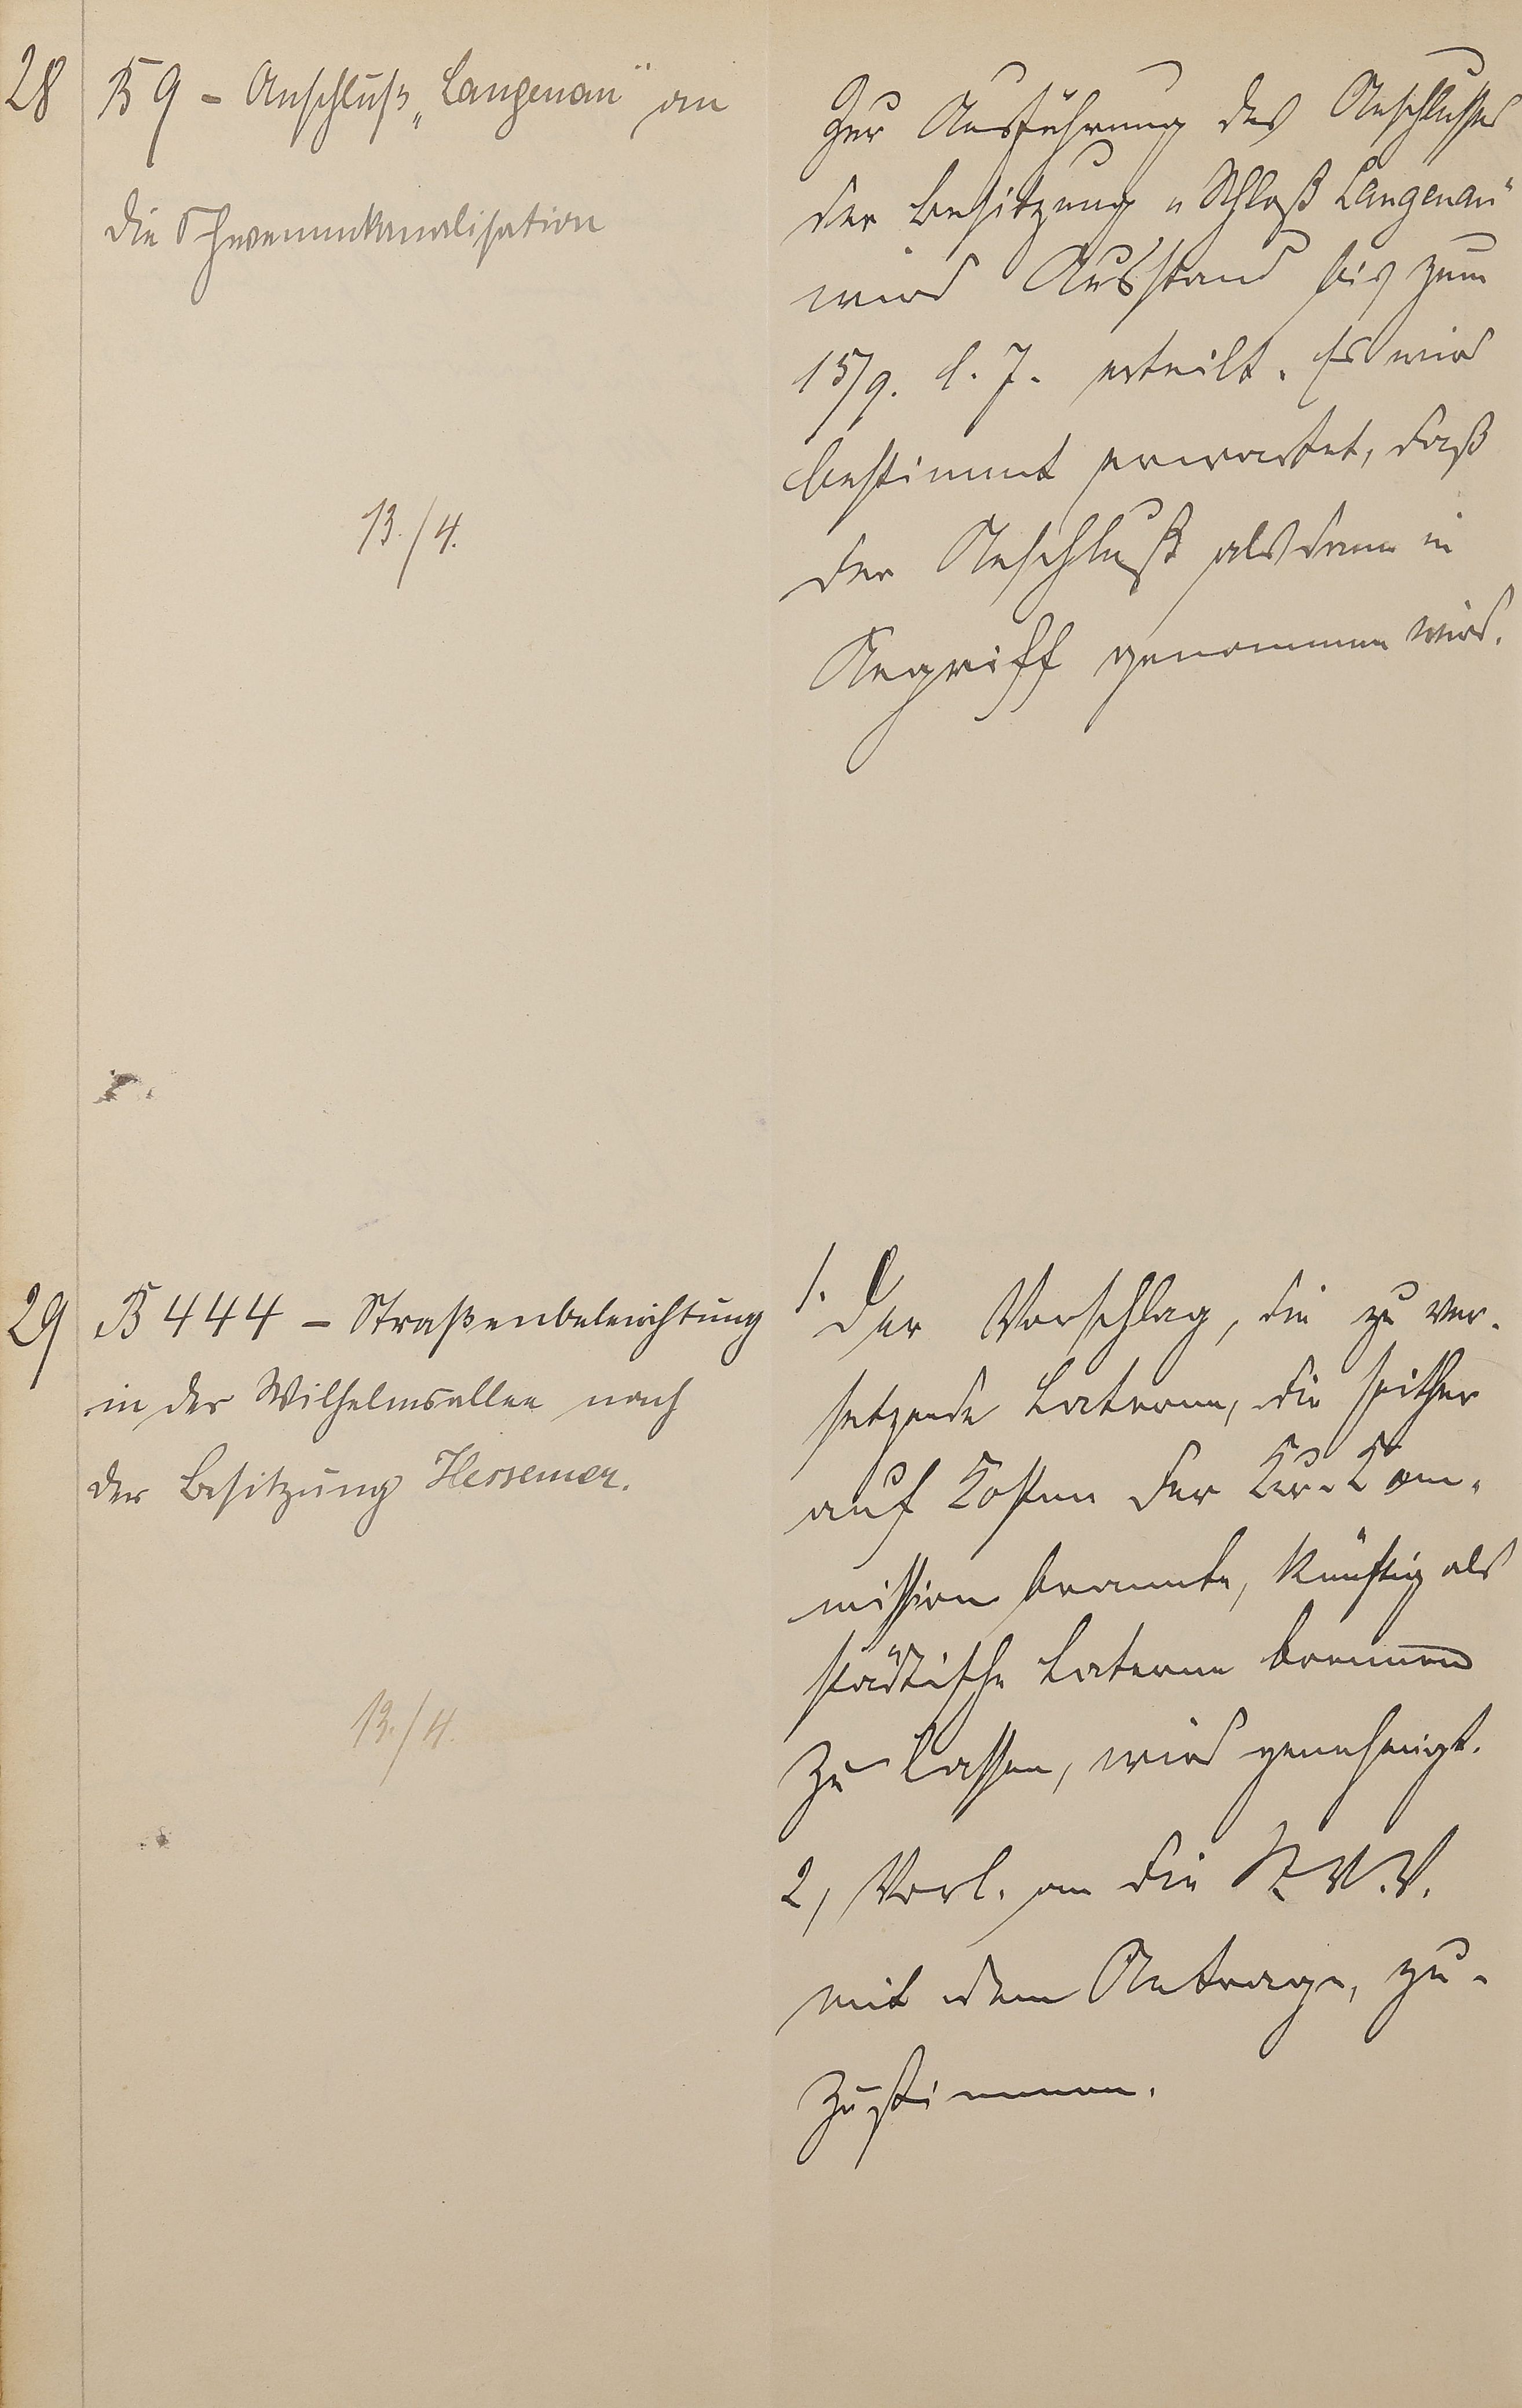 28
B 9 - Anschluß „Langenau" an
die Schwemmkanalisation
13./4.
Zur Ausführung des Anschlusses
der Besitzung „Schloß Langenau"
wird Ausstand bis zum
15/9. l. J. erteilt. Es wird
bestimmt erwartet, daß
der Anschluß alsdann in
Angriff genommen wird.
29
B 444 - Straßenbeleuchtung
in der Wilhelmsallee nach
der Besitzung Hessemer.
13./4.
1. Der Vorschlag, die zu ver-
setzende Laterne, die seither
auf Kosten der Kur-Kom-
mission brannte, künftig als
städtische Laterne brennen
zu lassen, wird genehmigt.
2, Vorl. an die St. V. V.
mit dem Antrage, zu-
zustimmen.